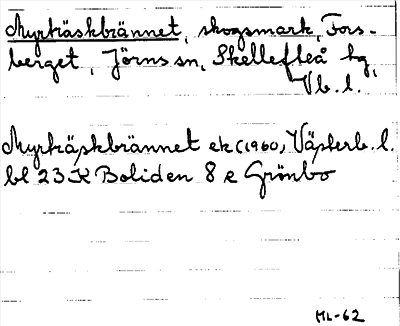 Myrträskbrännet, skogsmark, Fors-
berget, Jörns sn, Skellefteå tg,
Vb. l.
Myrträskbrännet ek (1960, Västerb. l.
bl 23 K Boliden 8 e Grönbo
ML-62